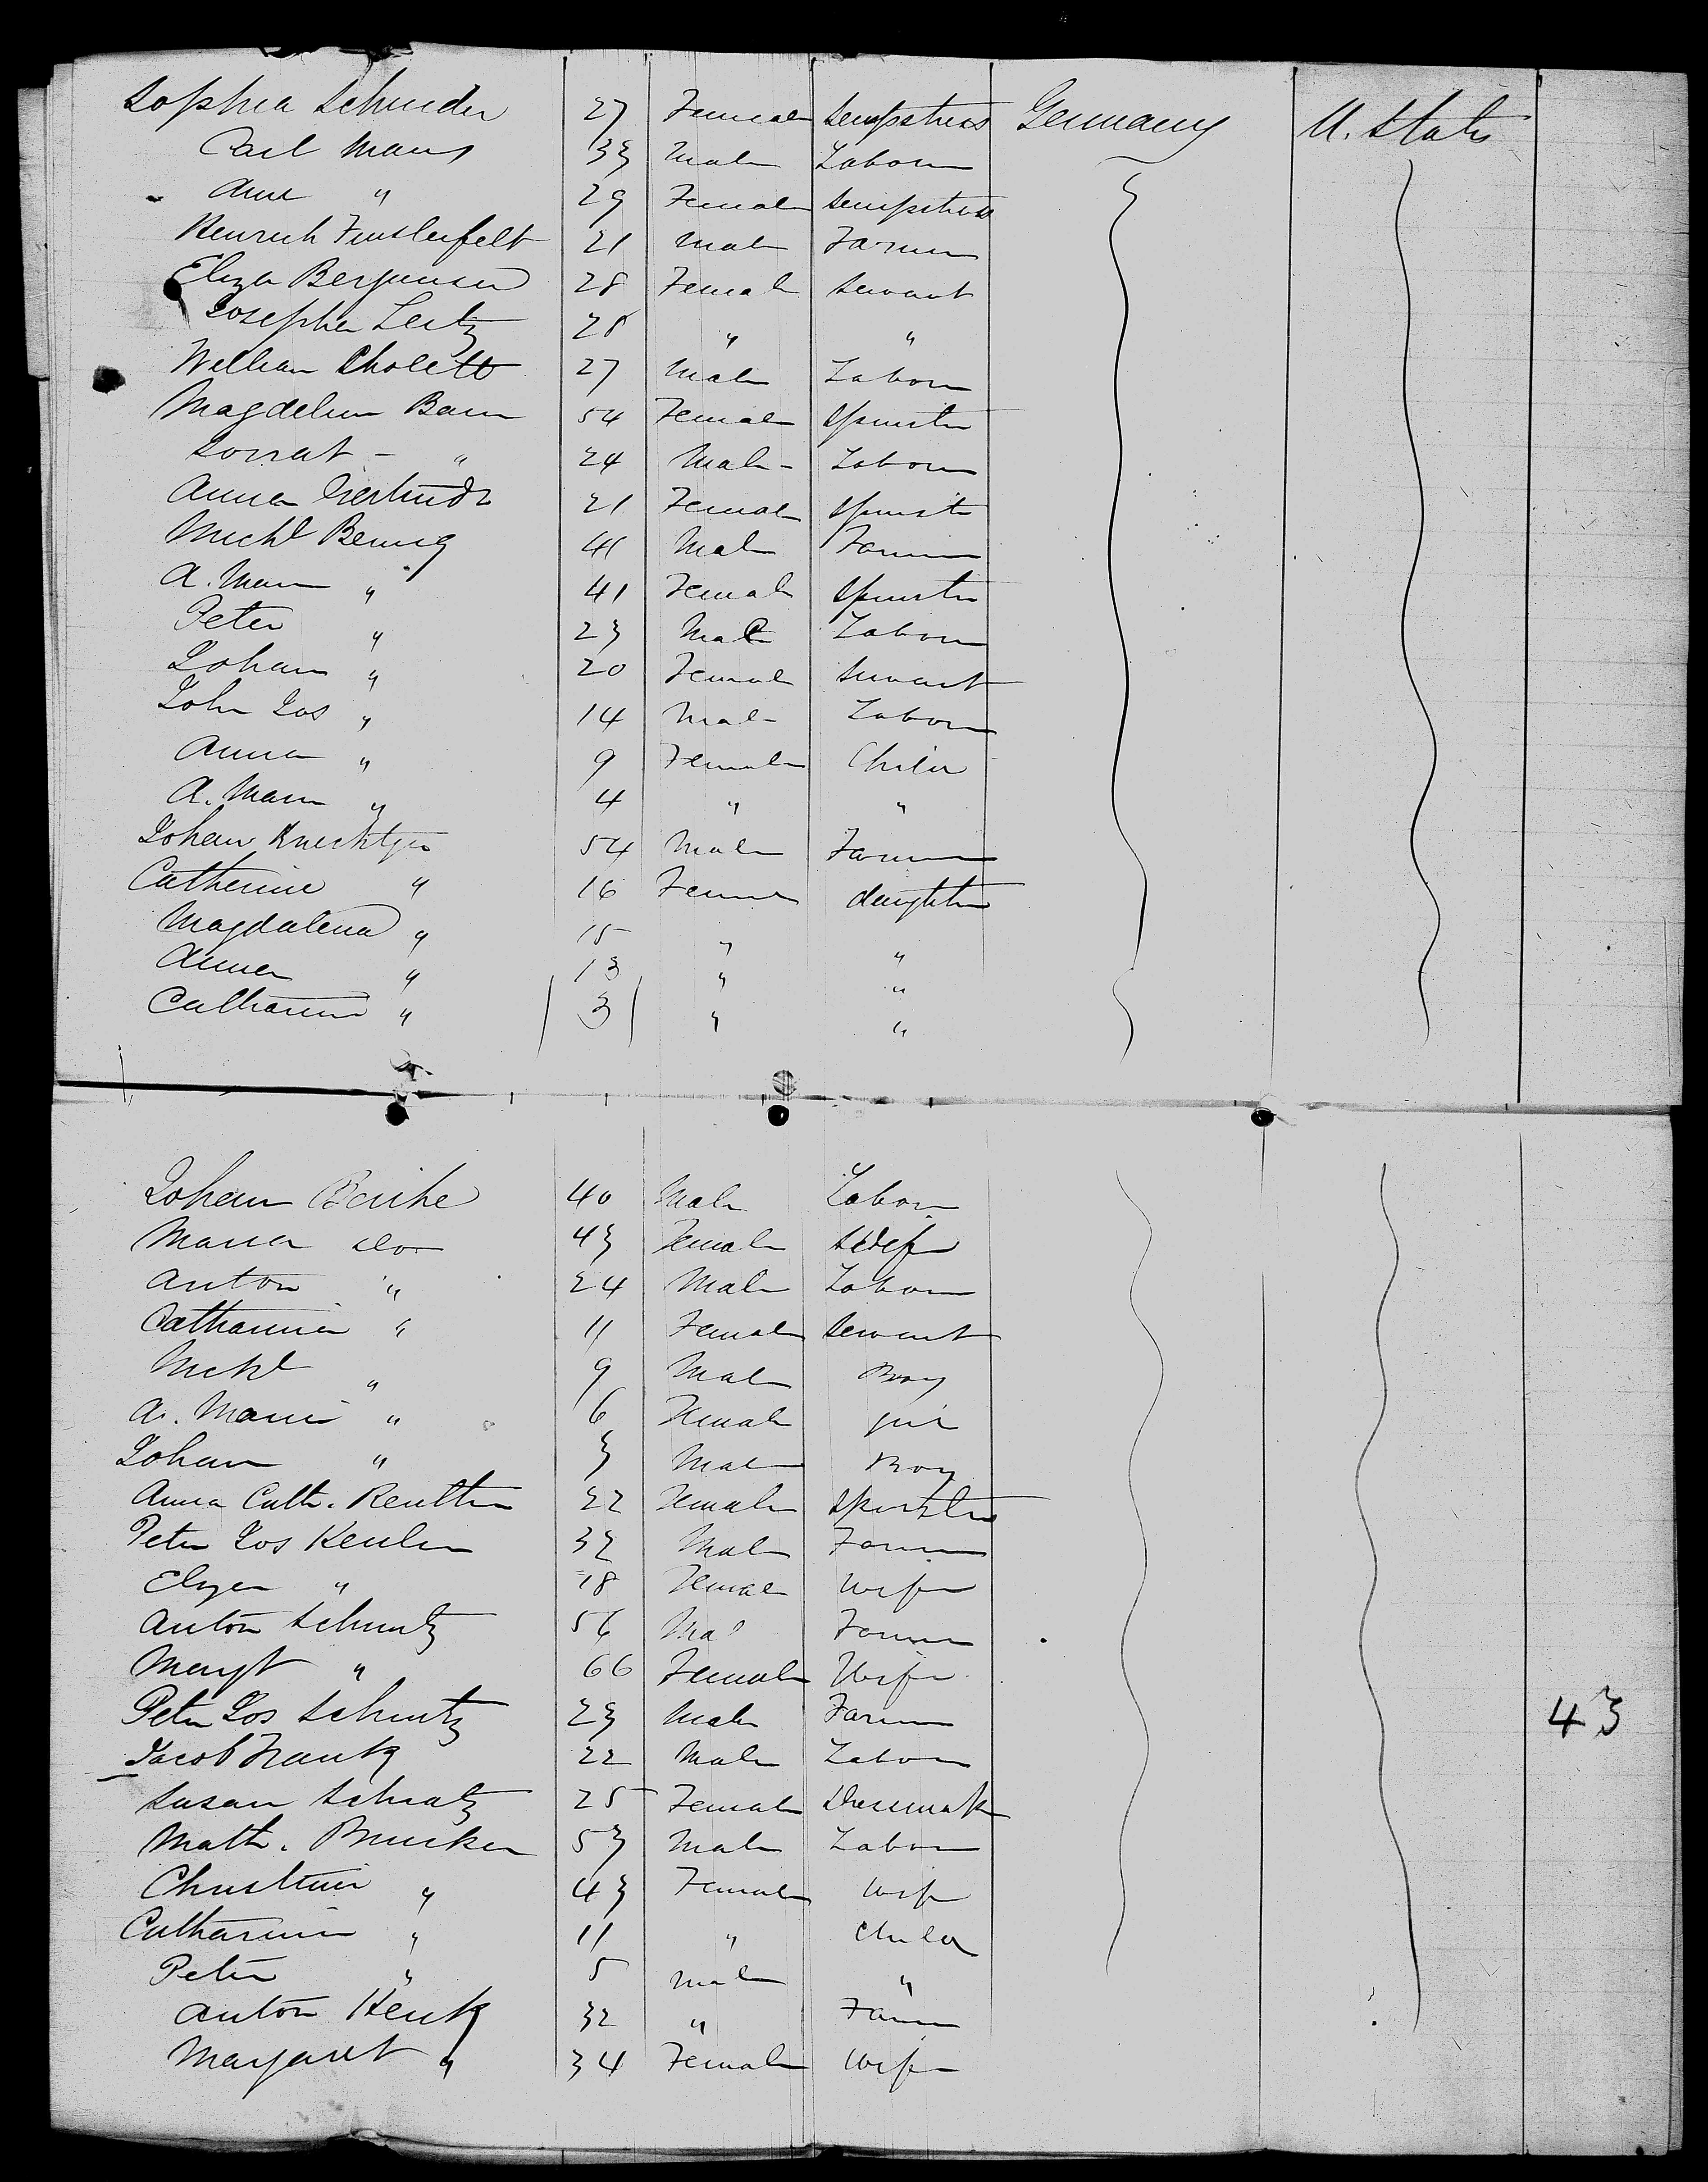 Sophia Schneider 27 Female Sempstress Germany U. States
Carl Maus 33 Male Labour
Anna " 29 Female Sempstress
Henrich Finsterfelt 21 Male Farmer
Eliza 28 Female Servant
Josepha Lentz 28 " "
William 27 Male Labour
Magdelina 54 Female Spinster
- " 24 Male - Labour
Anna Gertrude 21 Female Spinster
Michl Bennig 41 Male Farmer
A. Maria " 41 Female Spinster
Peter " 23 Male Labour
Johan " 20 Female Servant
John Jos " 14 Male Labour
Anna " 9 Female Child
A. Maria " 4 " "
Johan Knechtges 54 Male Farmer
Catherine " 16 Female daughter
Magdalena " 15 " "
Anna " 13 " "
Catharina " 3 " "
Johan 40 Male Labour
Maria do 43 Female
Anton " 24 Male Labour
Catharina " 11 Female Servant
Michl " 9 Male Boy
A. Maria " 6 Female girl
Johan " 3 Male Boy
Anna Cath. 22 Female Spinster
Peter Jos Keulen 32 Male Farmer
Eliza " 28 Female Wife
Anton Schmitz 56 Male Farmer
Margt " 66 Female Wife
Peter Jos Schmitz 23 Male Farmer 43
Jacob Frank 22 Male Labour
Susan Schatz 25 Female Dressmaker
Math. Brucker 53 Male Labour
Christina " 43 Female Wife
Catharina " 11 " Child
Peter " 5 Male "
Anton Henk 32 " Farmer
Margaret " 34 Female Wife